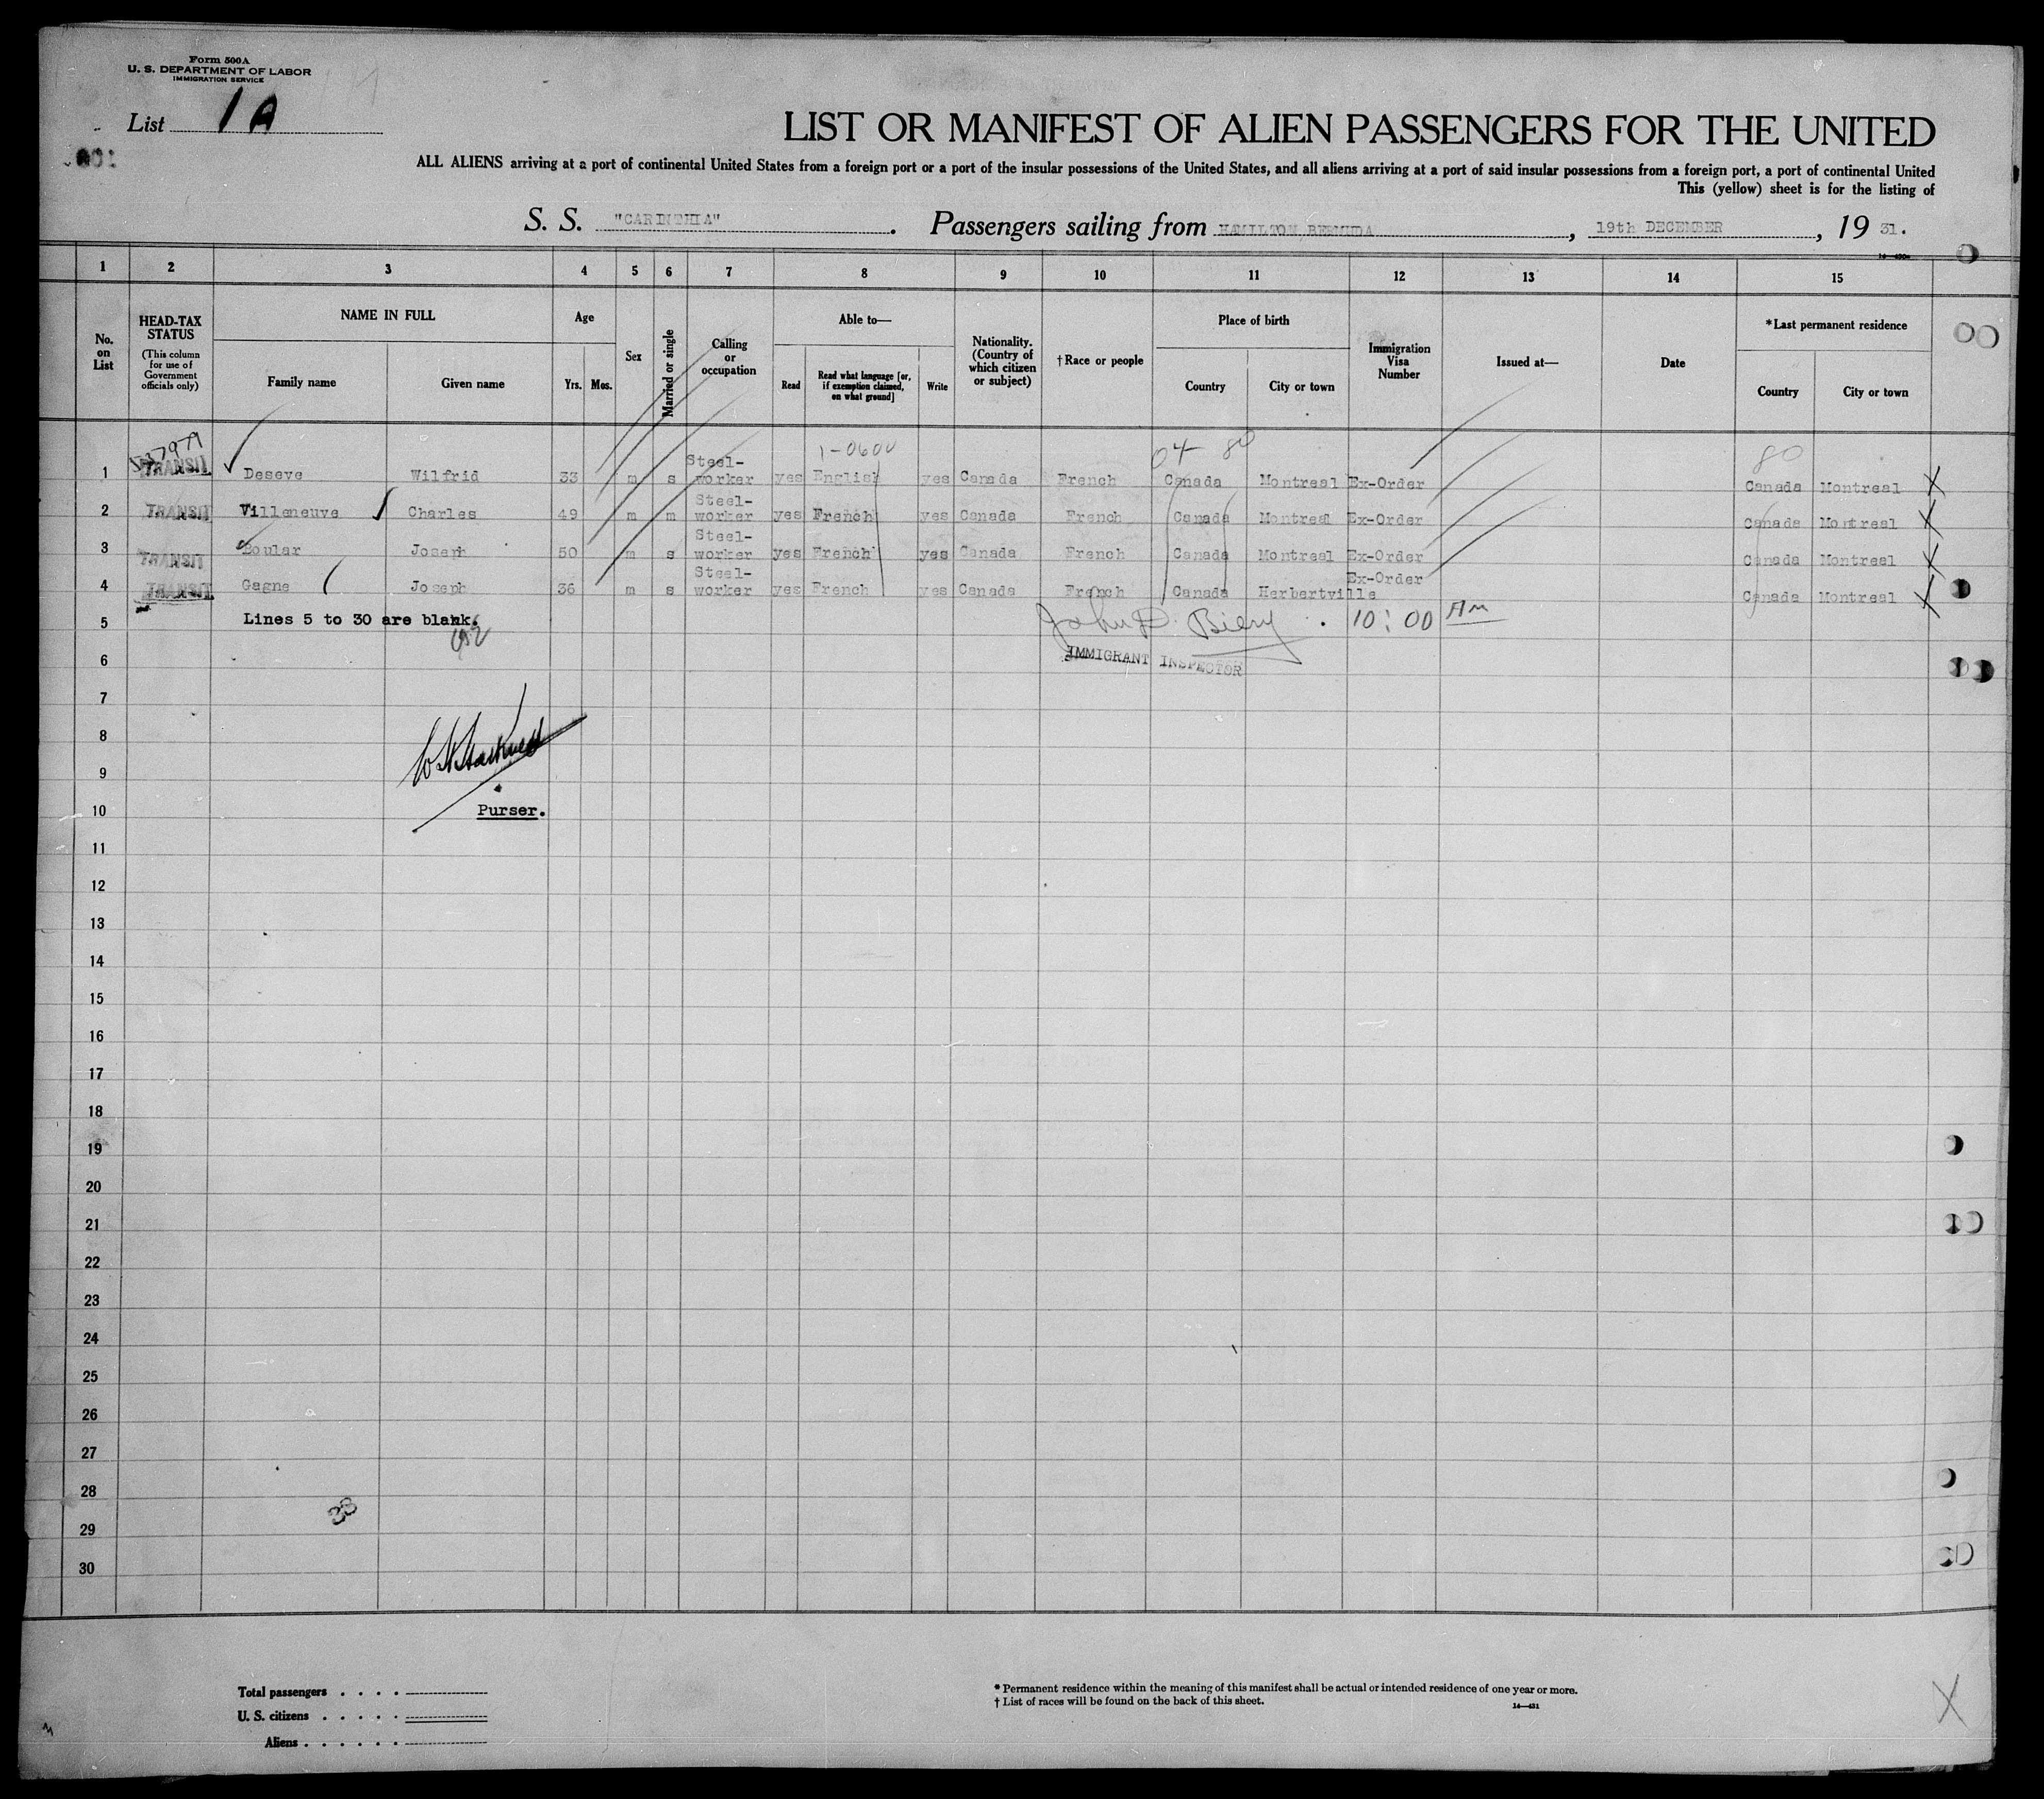 Form 500A
U. S. DEPARTMENT OF LABOR
IMMIGRATION SERVICE
List 1A
LIST OR MANIFEST OF ALIEN PASSENGERS FOR THE UNITED
ALL ALIENS arriving at a port of continental United States from a foreign port or a port of the insular possessions of the United States, and all aliens arriving at a port of said insular possessions from a foreign port, a port of continental United
This (yellow) sheet is for the listing of
S. S. "CARINTHIA". Passengers sailing from HAMILTON BERMUDA, 19th DECEMBER, 19 31.
1 2 3 4 5 6 7 8 9 10 11 12 13 14 15
No. on List
HEAD-TAX STATUS
(This column for use of Government officials only)
NAME IN FULL
Family name Given name
Age
Yrs. Mos.
Sex
Married or single
Calling or occupation
Able to—
Read
Read what language [or, if exemption claimed, on what ground]
Write
Nationality. (Country of which citizen or subject)
†Race or people
Place of birth
Country City or town
Immigration Visa Number
Issued at—
Date
*Last permanent residence
Country City or town
1-0600 04 80 80
1 TRANSIT Deseve Wilfrid 33 m s Steel-worker yes English yes Canada French Canada Montreal Ex-Order Canada Montreal X
2 TRANSIT Villeneuve Charles 49 m m Steel-worker yes French yes Canada French Canada Montreal Ex-Order Canada Montreal X
3 TRANSIT Boular Joseph 50 m s Steel-worker yes French yes Canada French Canada Montreal Ex-Order Canada Montreal X
4 TRANSIT Gagne Joseph 36 m s Steel-worker yes French yes Canada French Canada Herbertville Ex-Order Canada Montreal X
5 Lines 5 to 30 are blank.
John D. Biery. 10:00 AM
IMMIGRANT INSPECTOR
6
7
8
9
Purser.
10
11
12
13
14
15
16
17
18
19
20
21
22
23
24
25
26
27
28
29
30
Total passengers . . . .
U. S. citizens . . . . .
Aliens . . . . . .
* Permanent residence within the meaning of this manifest shall be actual or intended residence of one year or more.
† List of races will be found on the back of this sheet.
14—431
X